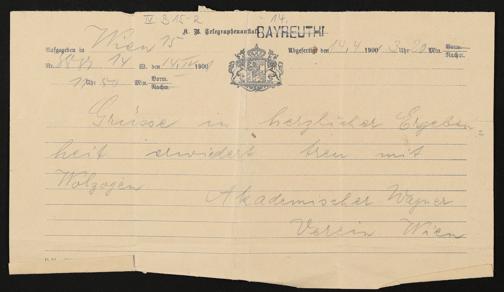 IV B 15-2
14.
K. B. Telegraphenanstalt BAYREUTH I
Aufgegeben in Wien 15 Abgefertigt den 14/4 1900 3 Uhr 20 Min. Vorm. Nachm.
Nr. 14 W. den 14/IV 1900
11 Uhr 50 Min. Vorm. Nachm.
Grüsse in herzlicher Ergeben=
heit erwiedert treu mit
Wolzogen
Akademischer Wagner
Verein Wien